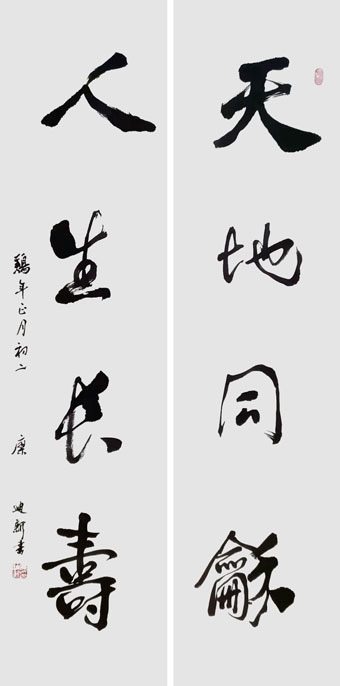 天地同龢
人生長壽
鷄年正月初二 康 迪新書